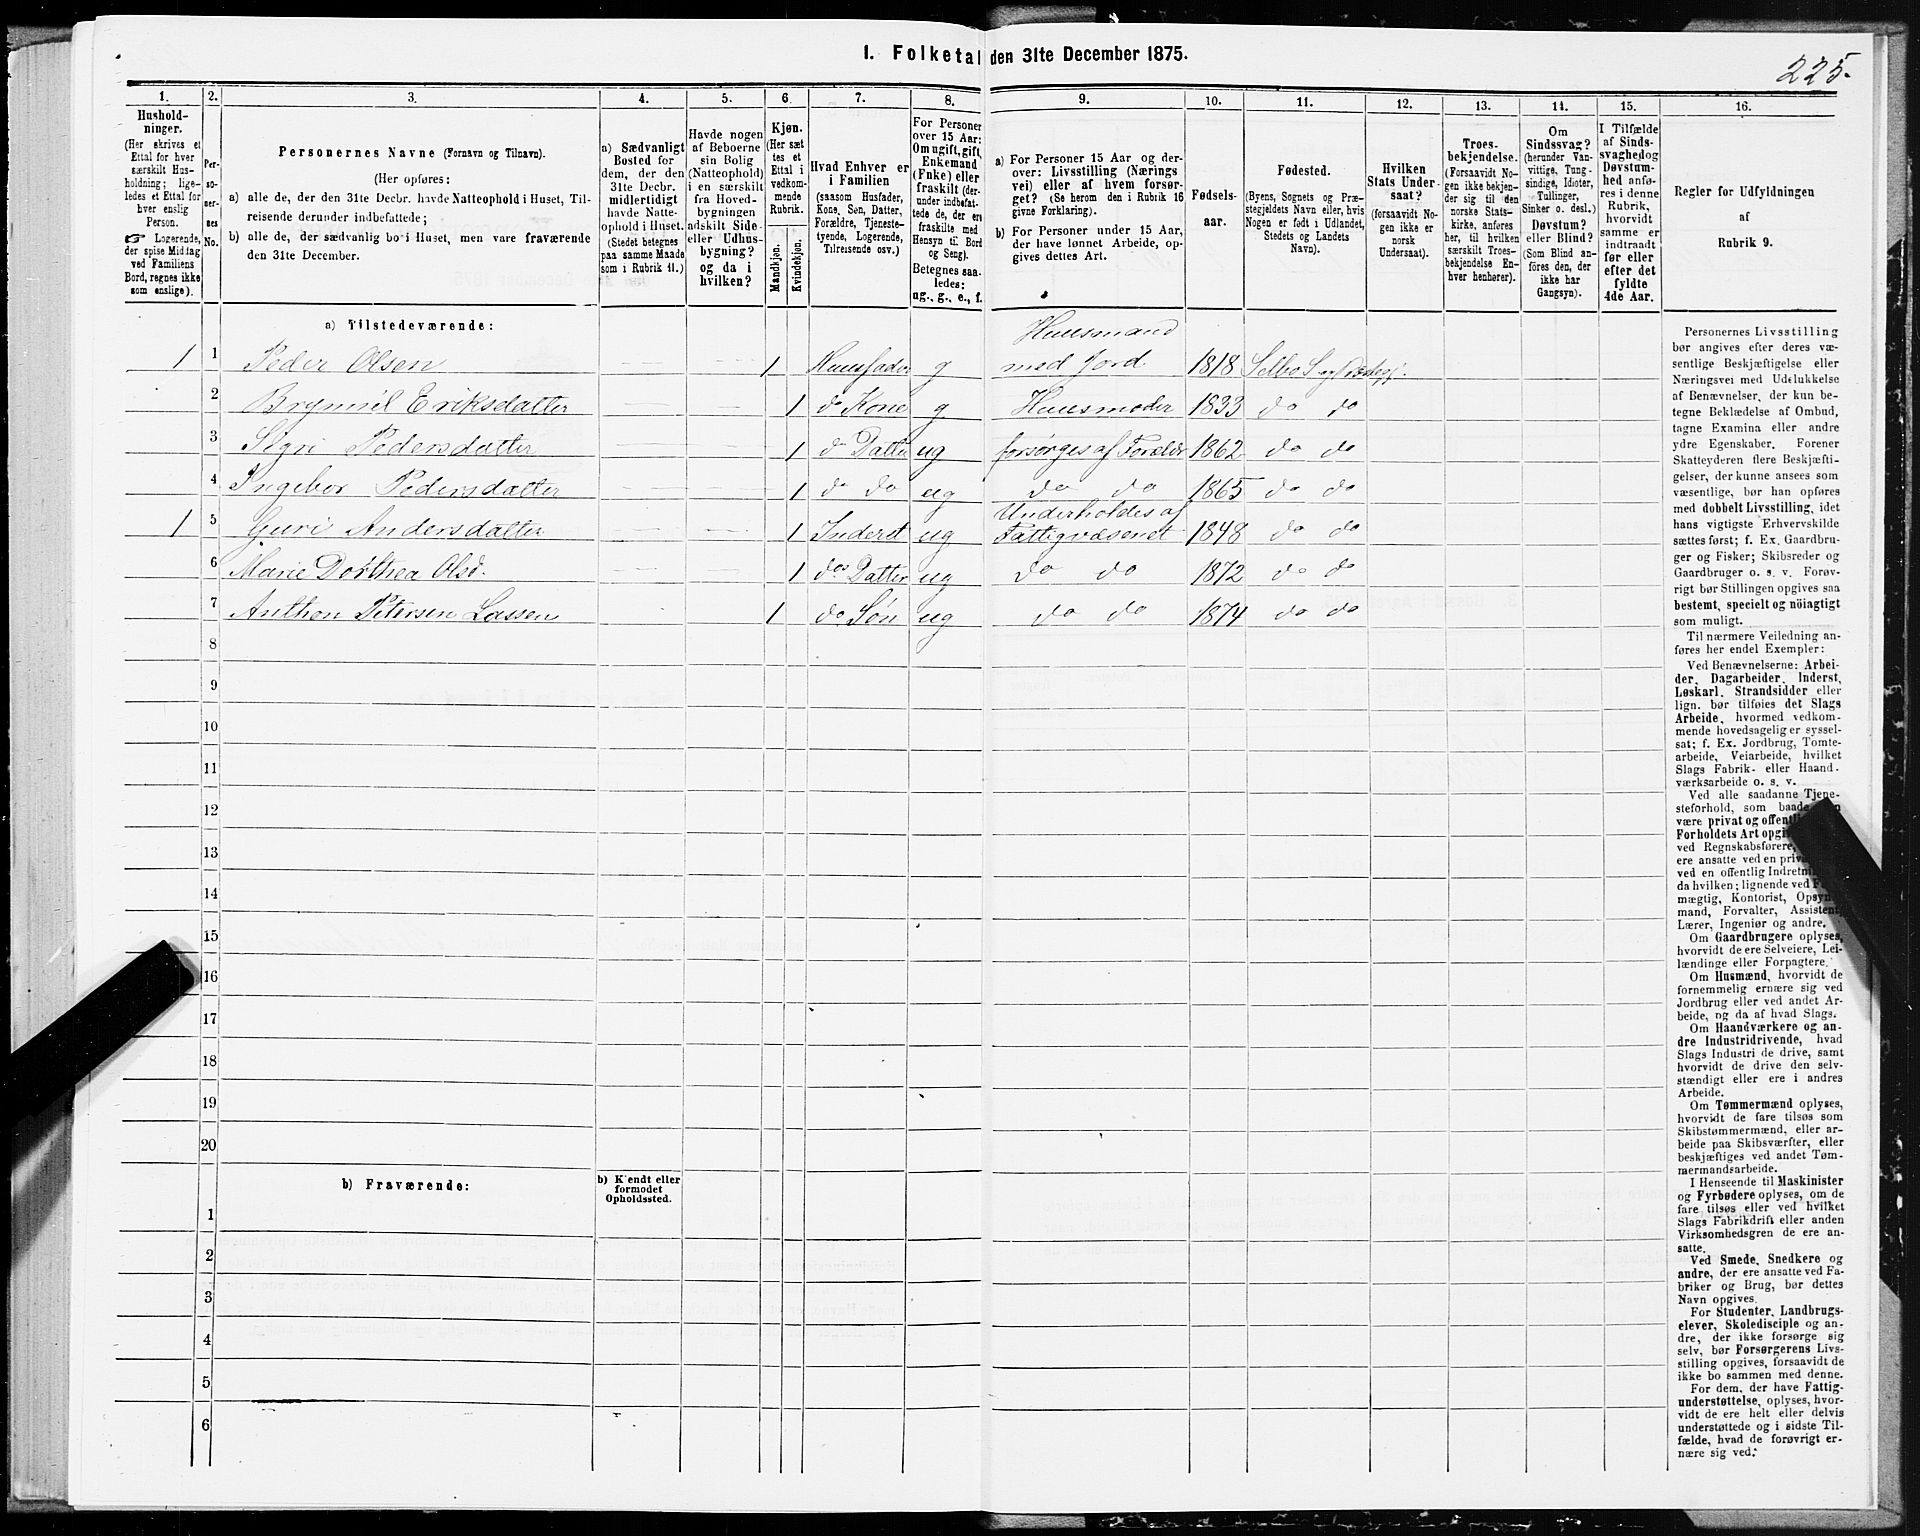 1. Folketal den 31te December 1875.
225.
1.
2.
3.
4.
5.
6.
7.
8.
9.
10.
11.
12.
13.
14.
15.
16.
Hushold-
ninger.
(Her skrives et
Ettal for hver
særskilt Hus-
holdning; lige-
ledes et Ettal for
hver enslig
Person.
☞ Logerende,
der spise Middag
ved Familiens
Bord, regnes ikke
som enslige).
Per-
so-
ner-
nes
No.
Personernes Navne (Fornavn og Tilnavn).
(Her opføres:
a) alle de, der den 31te Decbr. havde Natteophold i Huset, Til-
reisende derunder indbefattede;
b) alle de, der sædvanlig bo i Huset, men vare fraværende
den 31te December.
a) Sædvanligt
Bosted for
dem, der den
31te Decbr.
midlertidigt
havde Natte-
ophold i Huset.
(Stedet betegnes
paa samme Maade
som i Rubrik 11.)
Havde nogen
af Beboerne
sin Bolig
(Natteophold)
i en særskilt
fra Hoved-
bygningen
adskilt Side-
eller Udhus-
bygning?
og da i
hvilken?
Kjøn.
(Her sæt
tes et
Ettal i
vedkom-
mende
Rubrik.
Mandkjøn.
Kvindekjøn.
Hvad Enhver er
i Familien
(saasom Husfader,
Kone, Søn, Datter,
Forældre, Tjeneste-
tyende, Logerende,
Tilreisende osv.)
For Personer
over 15 Aar:
Om ugift, gift,
Enkemand
(Enke) eller
fraskilt (der-
under indbefat-
tede de, der ere
fraskilte med
Hensyn til Bord
og Seng).
Betegnes saa-
ledes:
ug., g., e., f.
a) For Personer 15 Aar og der-
over: Livsstilling (Nærings
vei) eller af hvem forsør-
get? (Se herom den i Rubrik 16
givne Forklaring).
b) For Personer under 15 Aar,
der have lønnet Arbeide, op-
gives dettes Art.
Fødsels-
aar.
Fødested.
(Byens, Sognets og Præ-
stegjeldets Navn eller, hvis
Nogen er født i Udlandet,
Stedets og Landets
Navn).
Hvilken
Stats Under-
saat?
(forsaavidt No-
gen ikke er
norsk
Undersaat).
Troes-
bekjendelse.
(Forsaavidt No-
gen ikke bekjen-
der sig til den
norske Stats-
kirke, anføres
her, til hvilken
særskilt Troes-
bekjendelse En-
hver henhører).
Om
Sindssvag?
(herunder Van-
vittige, Tung-
sindige, Idioter,
Tullinger,
Sinker o. desl.)
Døvstum?
eller Blind?
(Som Blind an-
føres den, der
ikke har
Gangsyn).
I Tilfælde
af Sinds-
svaghed og
Døvstum-
hed anfø-
res i denne
Rubrik,
hvorvidt
samme er
indtraadt
før eller
efter det
fyldte
4de Aar.
Regler for Udfyldningen
af
Rubrik 9.
a) Tilstedeværende:
1 1 Peder Olsen 1 Huusfader g Huusmand
med Jord. 1818 Selbo S. og Præstegj.
2 Brynnil Eriksdatter 1 do Kone g Huusmoder 1833 do do
3 Sigri Pedersdatter 1 do Datter ug forsørges af Forældr 1862 do do
4 Ingebor Pedersdatter 1 do do ug do do 1865 do do
1 5 Guri Andersdatter 1 Inderst ug Underholdes af
Fattigvæsenet 1848 do do
6 Marie Dorthea Olsd. 1 des Datter ug do do 1872 do do
7 Anthon Petersen Lassen 1 do Søn ug do do 1874 do do
8
9
10
11
12
13
14
15
16
17
18
19
20
b) Fraværende:
b) Kjendt eller
formodet
Opholdssted.
1
2
3
4
5
6
Personernes Livsstilling
bør angives efter deres væ-
sentlige Beskjæftigelse eller
Næringsvei med Udelukkelse
af Benævnelser, der kun be-
tegne Beklædelse af Ombud,
tagne Examina eller andre
ydre Egenskaber. Forener
Skatteyderen flere Beskjæfti-
gelser, der kunne ansees som
væsentlige, bør han opføres
med dobbelt Livsstilling, idet
hans vigtigste Erhvervskilde
sættes først; f. Ex. Gaardbru-
ger og Fisker; Skibsreder og
Gaardbruger o. s. v. Forøv-
rigt bør Stillingen opgives saa
bestemt, specielt og nöiagtigt
som muligt.
Til nærmere Veiledning an-
føres her endel Exempler:
Ved Benævnelserne: Arbei-
der, Dagarbeider, Inderst,
Løskarl, Strandsidder eller
lign. bør tilføies det Slags
Arbeide, hvormed vedkom-
mende hovedsagelig er syssel-
sat; f. Ex. Jordbrug, Tomte-
arbeide, Veiarbeide, hvilket
Slags Fabrik- eller Haand-
værksarbeide o. s. v.
Ved alle saadanne Tjene-
steforhold, som baade
være privat og offentli
Forholdets Art opgi
ved Regnskabsførere,
ere ansatte ved en priv
ved en offentlig Indretni
da hvilken; lignende ved F
mægtig, Kontorist, Opsyns-
mand, Forvalter, Assistent,
Lærer, Ingeniør og andre.
Om Gaardbrugere oplyses,
hvorvidt de ere Selveiere, Lei-
lændinge eller Forpagtere.
Om Husmænd, hvorvidt de
fornemmelig ernære sig ved
Jordbrug eller ved andet Ar-
beide, og da af hvad Slags.
Om Haandværkere og an-
dre Industridrivende, hvad
Slags Industri de drive, samt
hvorvidt de drive den selv-
stændigt eller ere i andres
Arbeide.
Om Tømmermænd oplyses,
hvorvidt de fare tilsøs som
Skibstømmermænd, eller ar-
beide paa Skibsværfter, eller
beskjæftiges ved andet Tøm-
mermandsarbeide.
I Henseende til Maskinister
og Fyrbødere oplyses, om de
fare tilsøs eller ved hvilket
Slags Fabrikdrift eller anden
Virksomhedsgren de ere an-
satte.
Ved Smede, Snedkere og
andre, der ere ansatte ved Fa-
briker og Brug, bør dettes
Navn opgives.
For Studenter, Landbrugs-
elever, Skoledisciple og an-
dre, der ikke forsørge sig
selv, bør Forsørgerens Livs-
stilling opgives, forsaavidt de
ikke bo sammen med denne.
For dem, der have Fattig-
understøttelse, oplyses, hvor-
vidt de ere helt eller delvis
understøttede og i sidste Til-
fælde, hvad de forøvrigt er-
nære sig ved.